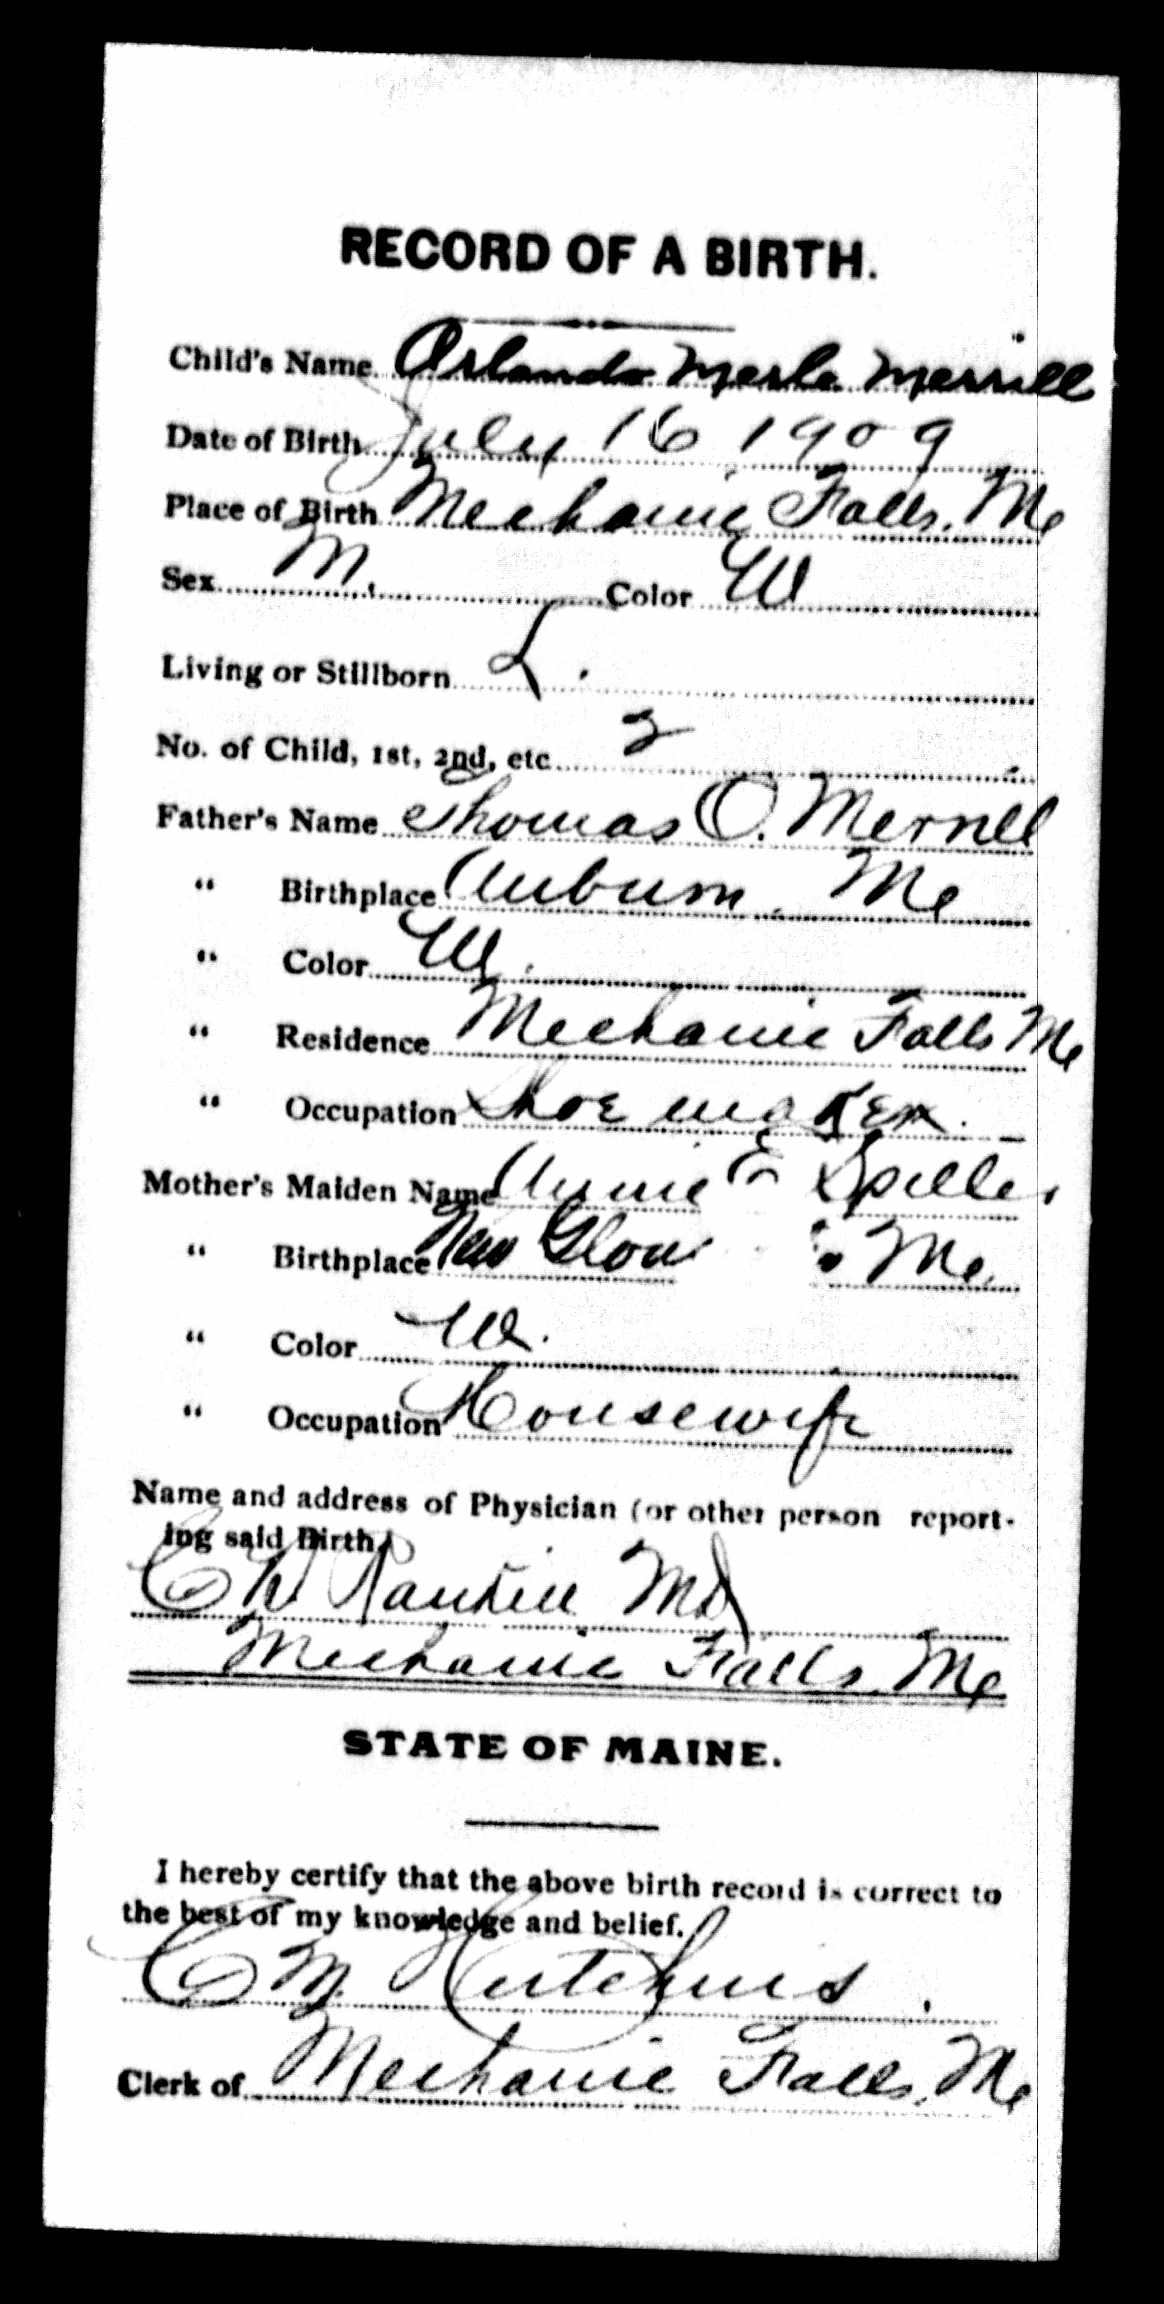 RECORD OF A BIRTH.
Child's Name Orlando Merle Merrill
Date of Birth July 16 1909
Place of Birth Mechanic Falls. Me
Sex M. Color W
Living or Stillborn L.
No. of Child, 1st, 2nd, etc 2
Father's Name Thomas O. Merrill
" Birthplace Auburn. Me
" Color W.
" Residence Mechanic Falls Me
" Occupation Shoe maker.
Mother's Maiden Name Annie E Spiller
" Birthplace New Me.
" Color W.
" Occupation Housewife
Name and address of Physician (or other person report-
ing said Birth.)
C W Rankin MD
Mechanic Falls. Me
STATE OF MAINE.
I hereby certify that the above birth record is correct to
the best of my knowledge and belief.
C M. Hutchins.
Clerk of Mechanic Falls. Me